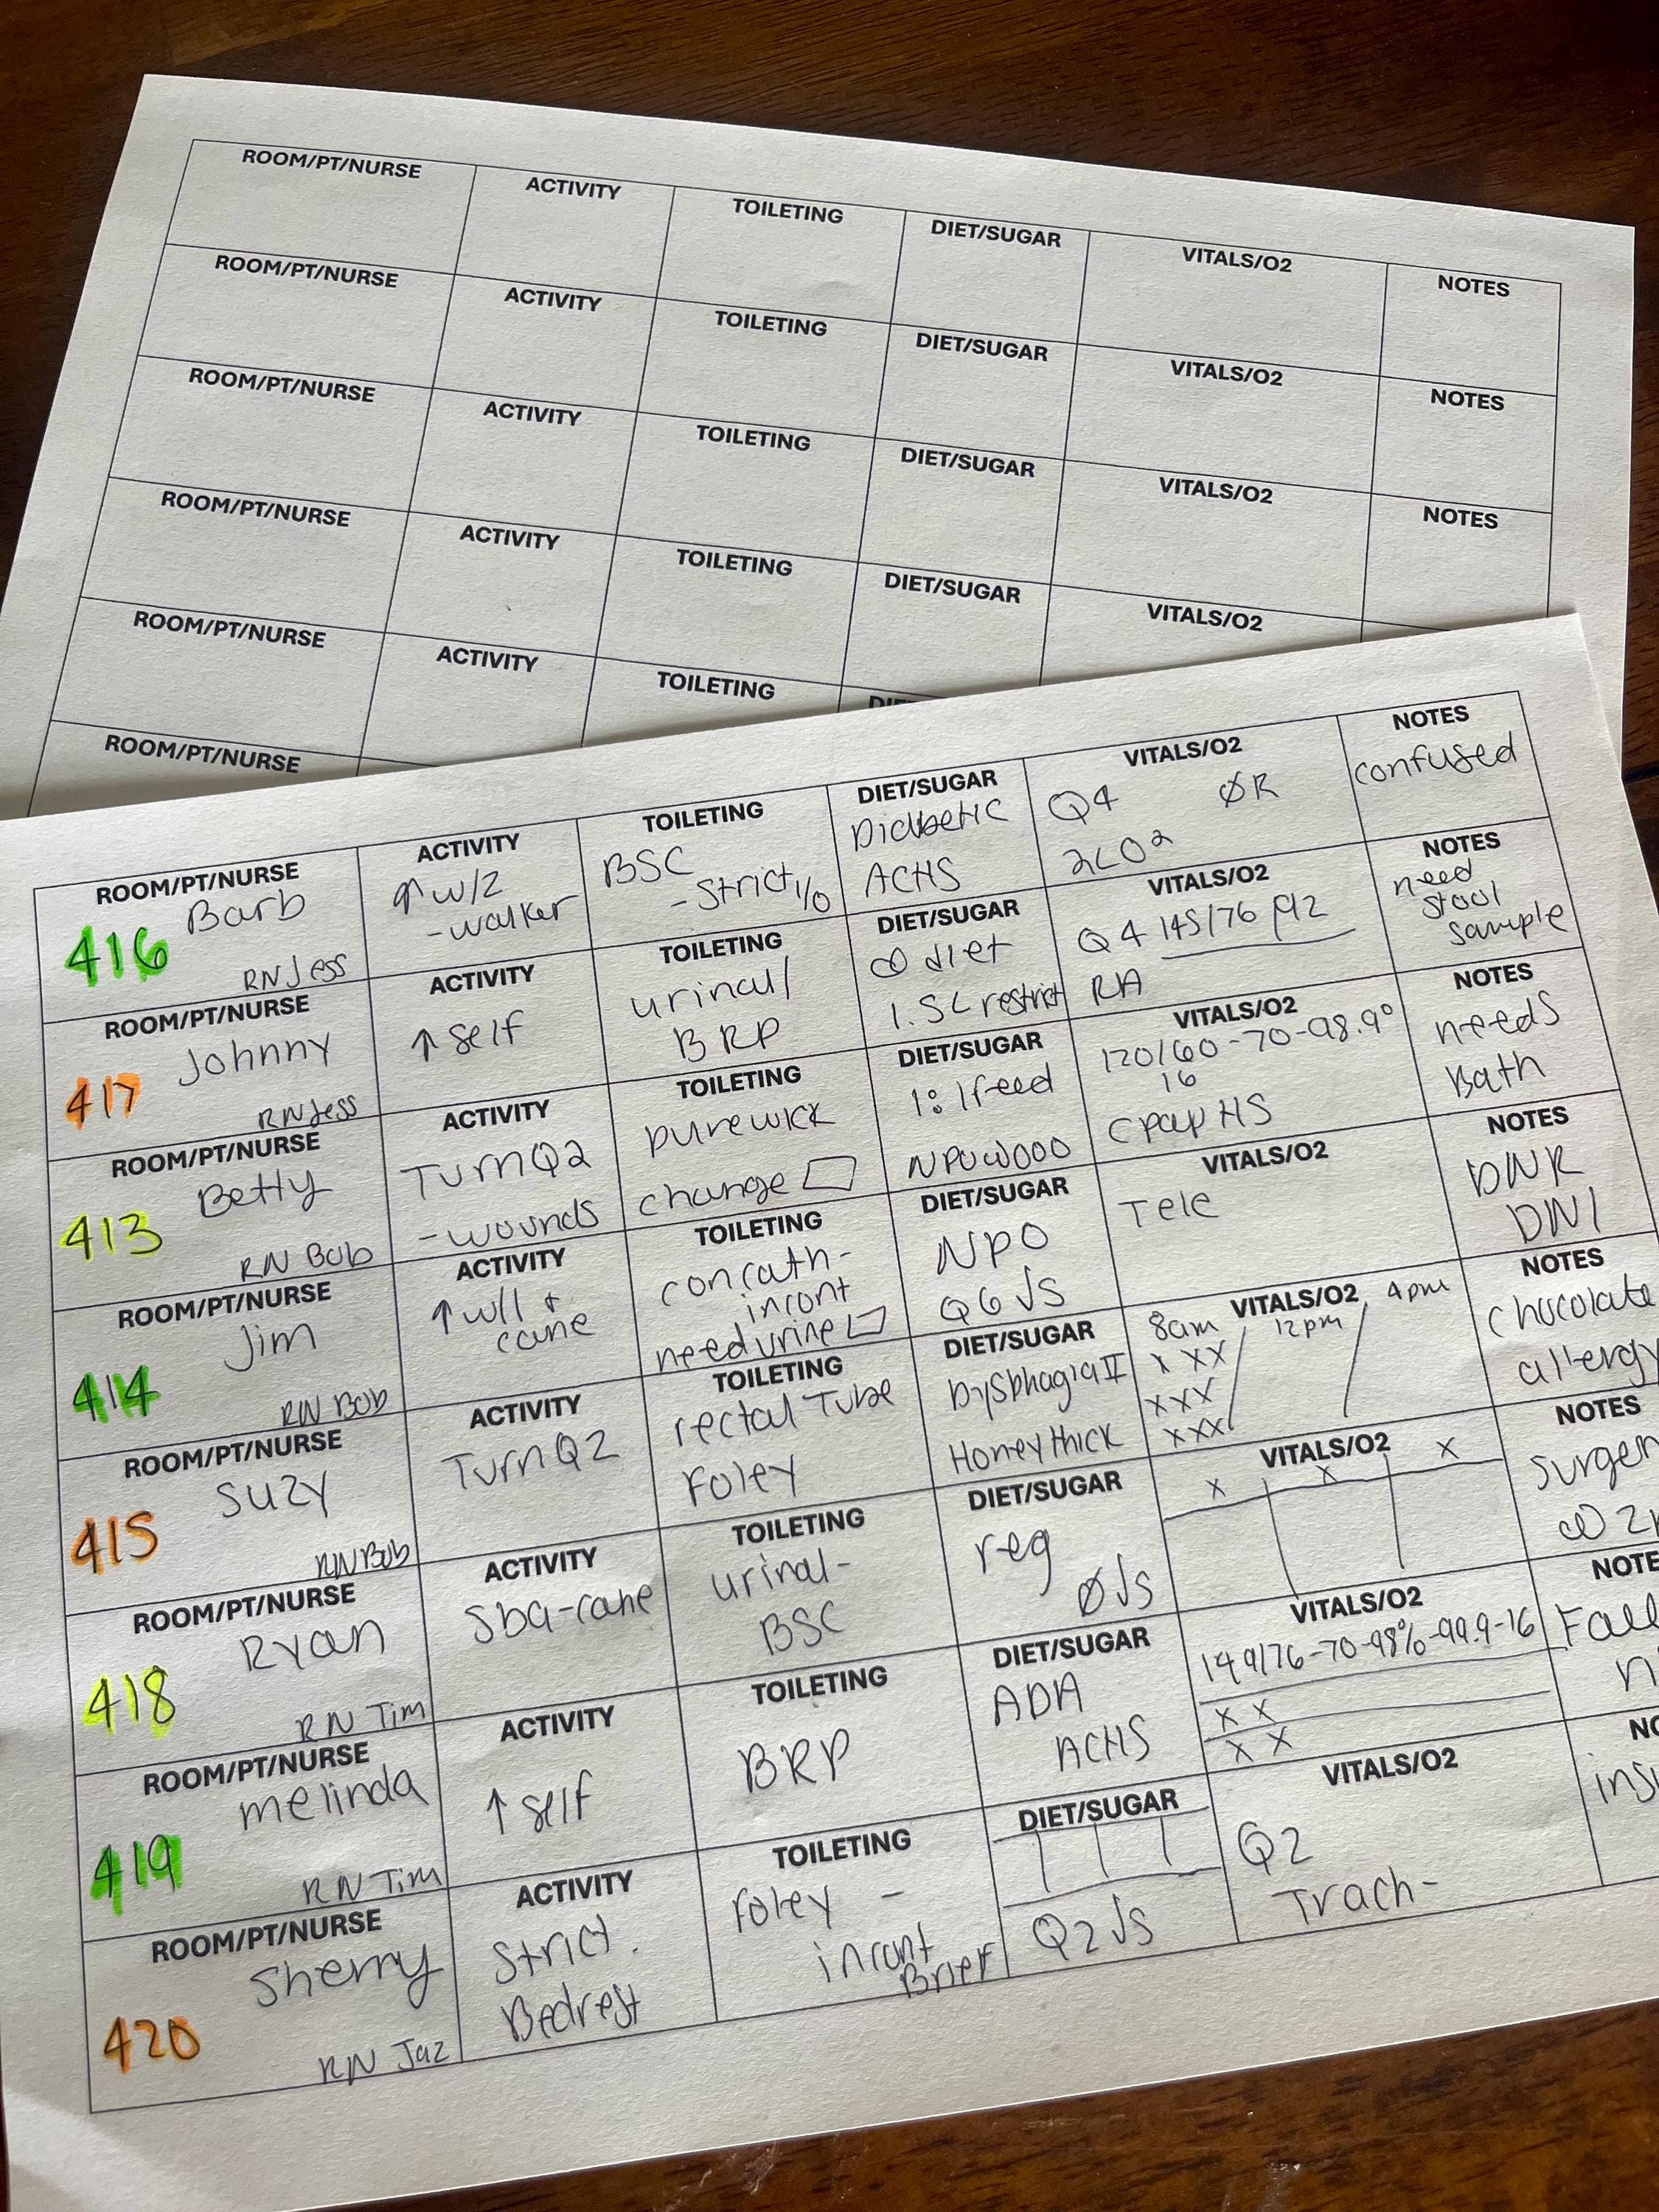 ROOM/PT/NURSE ACTIVITY TOILETING DIET/SUGAR VITALS/O2 NOTES
ROOM/PT/NURSE ACTIVITY TOILETING DIET/SUGAR VITALS/O2 NOTES
ROOM/PT/NURSE ACTIVITY TOILETING DIET/SUGAR VITALS/O2 NOTES
ROOM/PT/NURSE ACTIVITY TOILETING DIET/SUGAR VITALS/O2
ROOM/PT/NURSE ACTIVITY TOILETING
ROOM/PT/NURSE
ROOM/PT/NURSE
Barb
416
RN Jess
ACTIVITY
↑ w/2
-walker
TOILETING
BSC
-Strict I/O
DIET/SUGAR
Diabetic
ACHS
VITALS/O2
Q4 ØR
2LO2
NOTES
confused
ROOM/PT/NURSE
Johnny
417
RN Jess
ACTIVITY
↑ self
TOILETING
urinal/
BRP
DIET/SUGAR
diet
1.5L restrict
VITALS/O2
Q4 145/76 p92
RA
NOTES
need
stool
sample
ROOM/PT/NURSE
Betty
413
RN Bob
ACTIVITY
Turn Q2
-wounds
TOILETING
purewick
change
DIET/SUGAR
1:1 feed
NPO@000
VITALS/O2
120/60-70-98.9°
16
Cpap HS
NOTES
needs
Bath
ROOM/PT/NURSE
Jim
414
RN Bob
ACTIVITY
↑ w/1 +
cane
TOILETING
concath-
incont
need urine
DIET/SUGAR
NPO
Q6 √s
VITALS/O2
Tele
NOTES
DNR
DNI
ROOM/PT/NURSE
Suzy
415
RN Bob
ACTIVITY
Turn Q2
TOILETING
rectal Tube
Foley
DIET/SUGAR
Dysphagia II
Honey thick
VITALS/O2
8am / 12pm / 4pm
x xx
xxx
xxx
NOTES
chocolate
allergy
ROOM/PT/NURSE
Ryan
418
RN Tim
ACTIVITY
Sba-cane
TOILETING
urinal-
BSC
DIET/SUGAR
reg
Ø √s
VITALS/O2
x x x
NOTES
ROOM/PT/NURSE
melinda
419
RN Tim
ACTIVITY
↑ self
TOILETING
BRP
DIET/SUGAR
ADA
ACHS
VITALS/O2
149/76-70-98%-99.9-16
x x
x x
ROOM/PT/NURSE
Sherry
420
RN Jaz
ACTIVITY
Strict
Bedrest
TOILETING
Foley -
incont
Brief
DIET/SUGAR
Q2 √s
VITALS/O2
Q2
Trach-